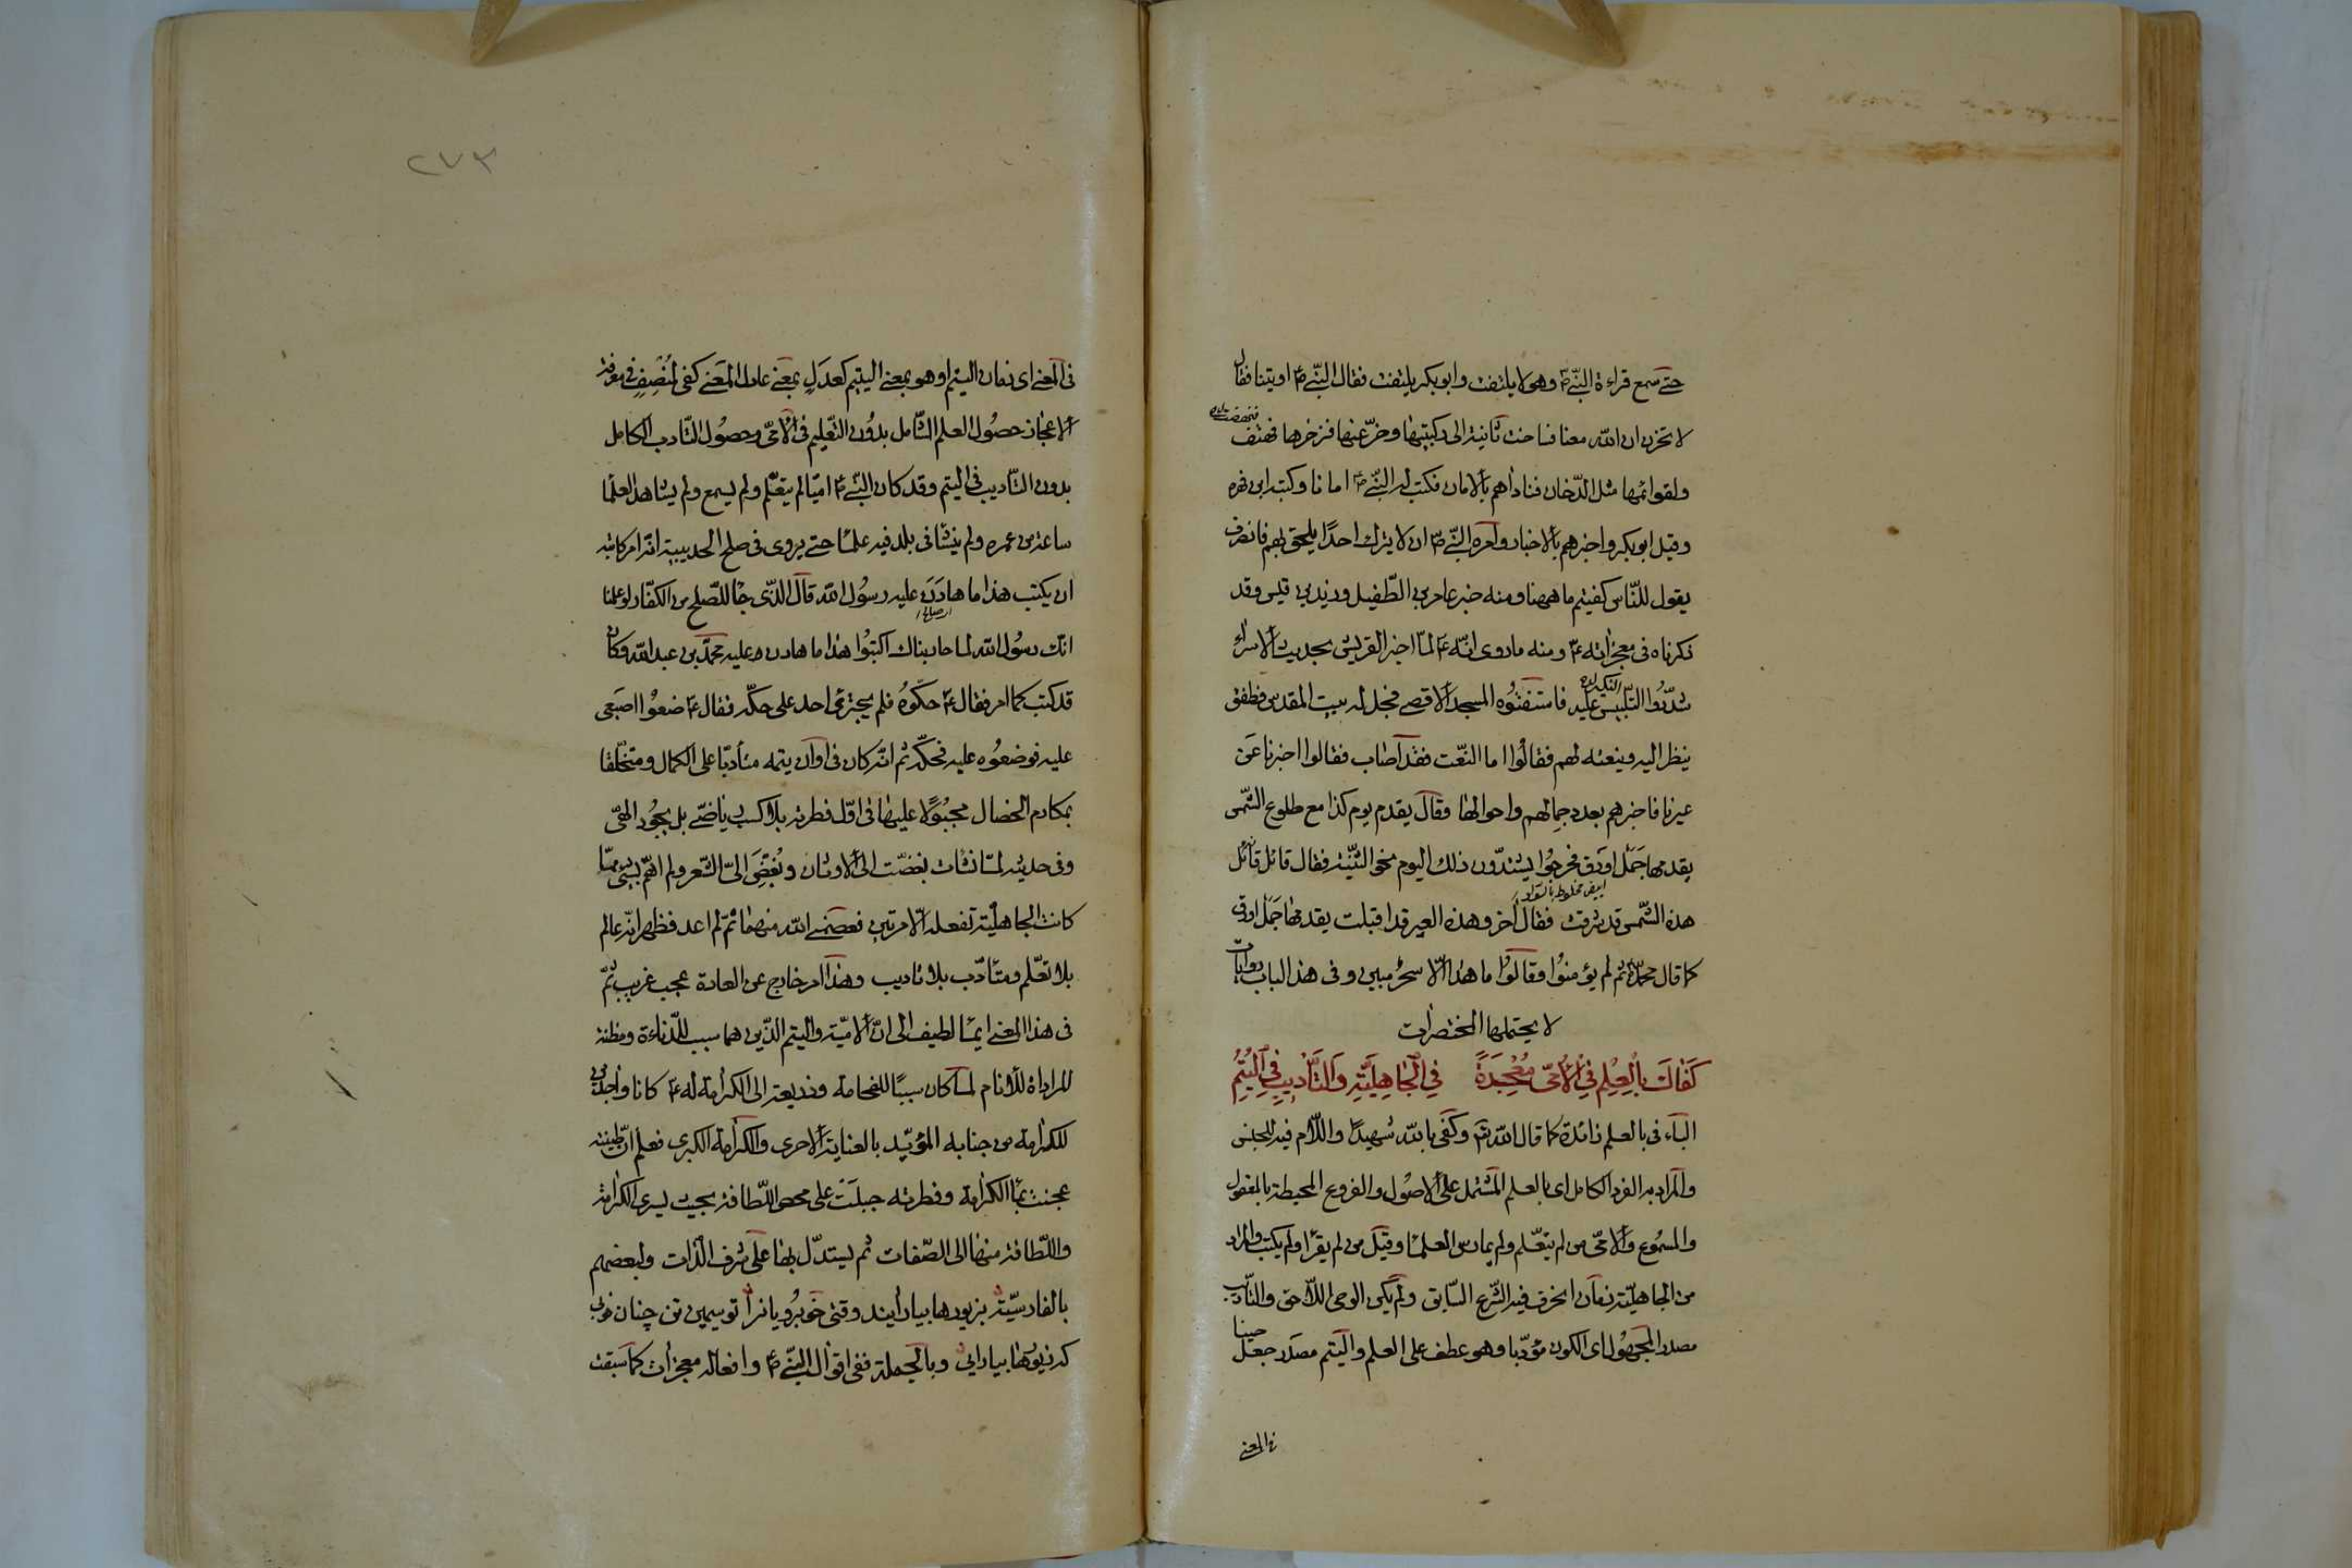 حتى سمع قراءة النبي ص وهو لا يلتفت وابو بكر يلتفت فقال النبي ص اوتينا فقال
لا تحزن ان الله معنا فساخت ثانية الى ركبتيها وخر عنها فزجرها فنهضت
ولقوائمها مثل الدخان فناداهم بالامان فكتب له النبي ص امانا وكتبه ابن فهيرة
وقيل ابو بكر واخبرهم بالاخبار وامره النبي ص ان لا يترك احدا يلحق بهم فانصرف
يقول للناس كفيتم ما ههنا ومنه خبر عامر بن الطفيل وزيد بن قيس وقد
ذكرناه في معجزاته ع ومنه ما روى انه ع لما اخبر القريش بحديث الاسراء
شددوا عليه فاستنعتوه المسجد الاقصى فجلى له بيت المقدس فطفق
ينظر اليه وينعته لهم فقالوا اما النعت فقد اصاب فقالوا اخبرنا عن
عيرنا فاخبرهم بعدد جمالهم واحوالها وقال يقدم يوم كذا مع طلوع الشمس
يقدمها جمل اورق فخرجوا يشتدون ذلك اليوم نحو الثنية فقال قائل
ابيض مخلوط بالسواد
هذه الشمس قد شرقت فقال آخر وهذه العير قد اقبلت يقدمها جمل اورق
كما قال محمد ثم لم يؤمنوا وقالوا ما هذا الا سحر مبين وفي هذا الباب روايات
لا يحتملها المختصرات
كَفَاكَ بِالْعِلْمِ فِي الْأُمِّيِّ مُعْجِزَةً فِي الْجَاهِلِيَّةِ وَالتَّأْدِيبِ فِي الْيُتُمِ
الباء في بالعلم زائدة كما قال الله تع وكفى بالله شهيدا واللام فيه للجنس
والمراد به الفرد الكامل اى بالعلم المشتمل على الاصول والفروع المحيطة بالمعقول
والمسموع والامى من لم يتعلم ولم يمارس العلماء وقيل من لم يقرا ولم يكتب والمراد
من الجاهلية زمان انخرق فيه الشرع السابق ولم يكن الوحى اللاحق والتاديب
مصدر المجهول اى الكون مؤدبا وهو عطف على العلم واليتم مصدر جعل حينا
في المعنى
٢٧٣
في المعنى اى زمان اليتم او هو بمعنى اليتيم كعدل بمعنى عادل المعنى كفى لمنصف في معرفة
الاعجاز حصول العلم الشامل بدون التعليم في الامى وحصول التاديب الكامل
بدون التاديب في اليتم وقد كان النبي ص اميا لم يتعلم ولم يسمع ولم يشاهد العلماء
ساعة من عمره ولم ينشا في بلد فيه علماء حتى يروى في صلح الحديبية انه امر كاتبه
ان يكتب هذا ما هادن عليه رسول الله قال الذى جاء للصلح من الكفار لو علمنا
انك رسول الله لما حاربناك اكتبوا هذا ما هادن عليه محمد بن عبد الله وكان
قد كتب كما امر فقال ع حكوه فلم يجترئ احد على حكه فقال ع ضعوا اصبعى
عليه فوضعوه عليه فحكه ثم انه كان في اوان يتمه متأدبا على الكمال ومتخلقا
بمكارم الخصال مجبولا عليها في اول فطرته بلا كسب رياضى بل بجود الهى
وفى حديثه لما نشات بغضت الى الاوثان وبغض الى الشعر ولم اهم بشئ مما
كانت الجاهلية تفعله الا مرتين فعصمنى الله منهما ثم لم اعد فظهر انه عالم
بلا تعلم ومتأدب بلا تاديب وهذا امر خارج عن العادة عجب غريب ثم
في هذا المعنى ايماء لطيف الى ان الامية واليتم الذين هما سبب للدناءة ومظنة
للأنام لما كان سببا للفخامة وذريعة الى الكرامة له ع كانا واجدين
للكرامة من جنابه المؤيد بالعناية الاحرى والكرامة الكبرى فعلم ان طينته
عجنت بماء الكرامة وفطرته جبلت على محض اللطافة بحيث يسرى الكرامة
واللطافة منها الى الصفات ثم يستدل بها على شرف الذات ولبعضهم
بالفارسية بزيورها بيارايند وقتى خوبرويانرا توسيمين تن چنان خوبى
كه زيورها بيارايى وبالجملة ففى اقوال النبي ص وافعاله معجزات كما سبقت